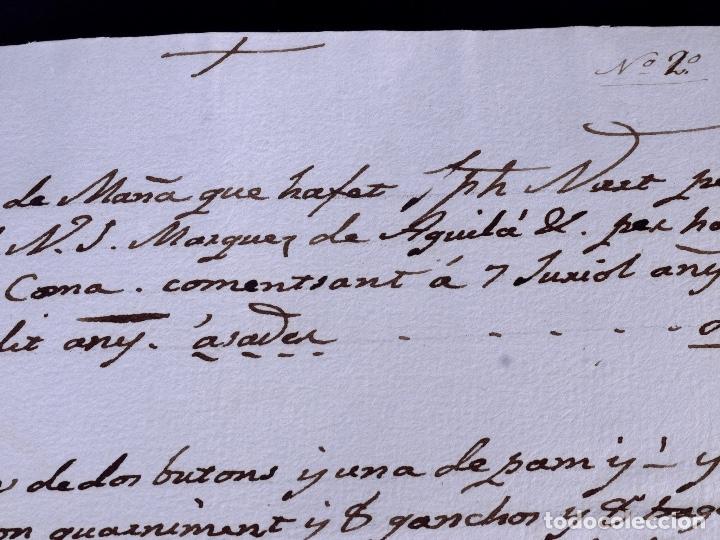 Nº 2º
de Maña que ha fet Jph Nart pe
N. S. Marquez de Aguilá &. per ho
Coma. comensant á 7 Juriol any
dit any. ásaber - - - - -
de dos butons y una de pam y ½ y
on guarniment y 8 ganchos y
todocoleccion